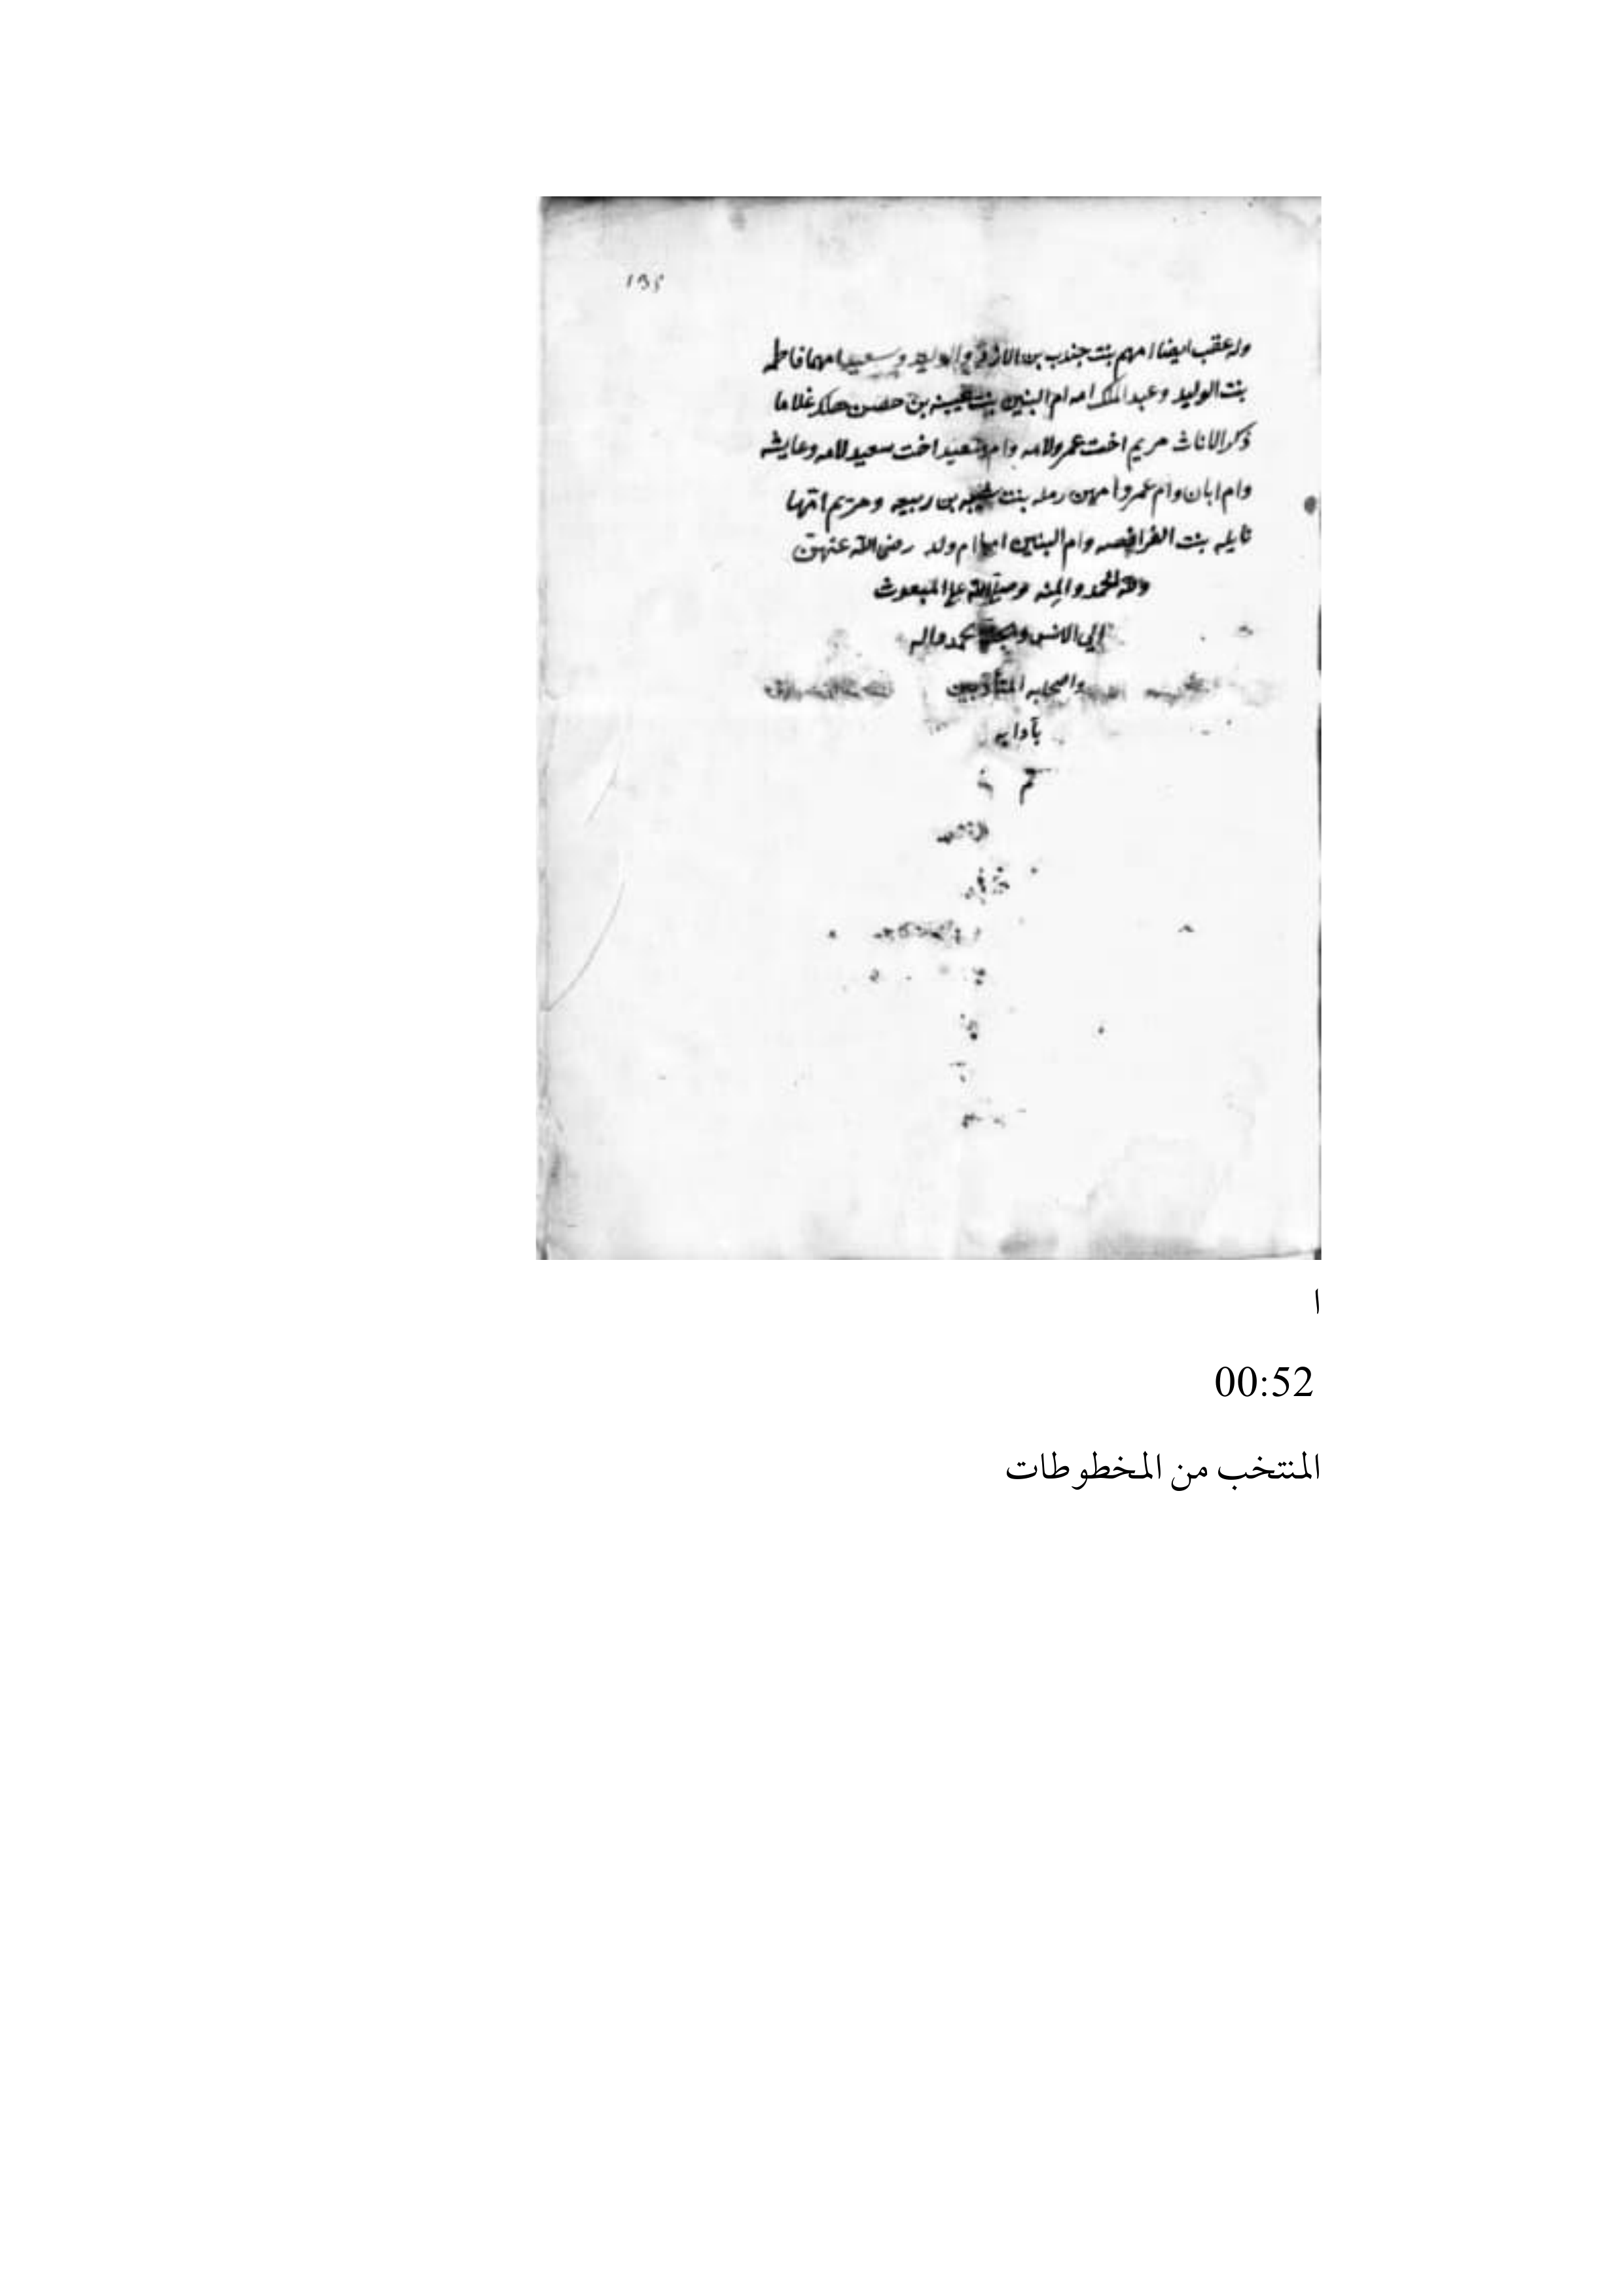 وله عقب ايضا امهم بنت جندب بن الازد والوليد وسعيد امهما فاطمه
بنت الوليد وعبد الملك امه ام البنين بنت عيينه بن حصن هلك غلاما
ذكر الاناث مريم اخت عمرو لامه وام سعيد اخت سعيد لامه وعايشه
وام ابان وام عمرو امهن رمله بنت شيبه بن ربيعه ومريم امها
نايله بنت الفرافصه وام البنين امها ام ولد رضى الله عنهن
ولله الحمد والمنه وصلى الله على المبعوث
الى الانس والجن محمد واله
واصحابه المتأدبين
بآدابه
تم
ا
00:52
المنتخب من المخطوطات